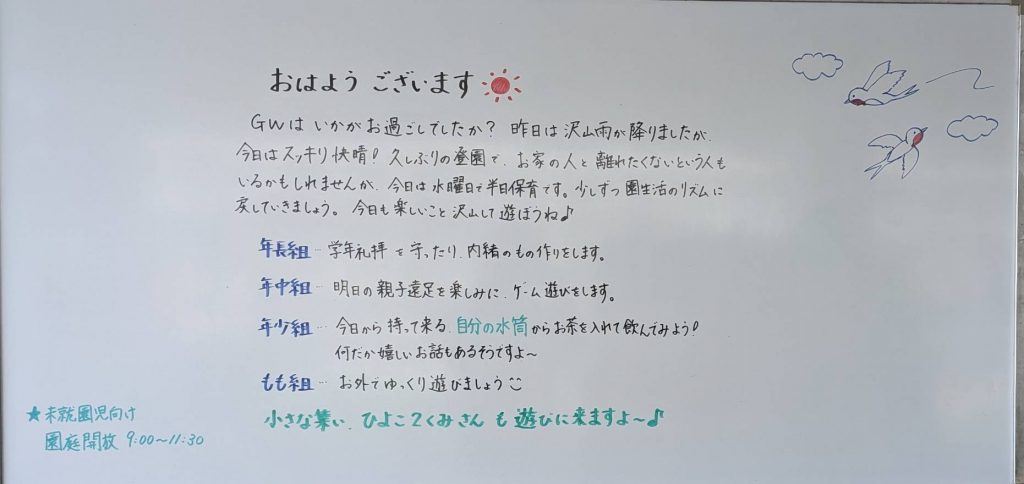 おはようございます
GWはいかがお過ごしでしたか？ 昨日は沢山雨が降りましたが、
今日はスッキリ快晴！久しぶりの登園で、お家の人と離れたくないという人も
いるかもしれませんが、今日は水曜日で半日保育です。少しずつ園生活のリズムに
戻していきましょう。今日も楽しいこと沢山して遊ぼうね♪
年長組… 学年礼拝を守ったり、内緒のもの作りをします。
年中組… 明日の親子遠足を楽しみに、ゲーム遊びをします。
年少組… 今日から持って来る、自分の水筒からお茶を入れて飲んでみよう！
何だか嬉しいお話もあるそうですよ〜
もも組… お外でゆっくり遊びましょう
小さな集い、ひよこ2くみさんも遊びに来ますよ〜♪
★未就園児向け
園庭開放 9:00〜11:30